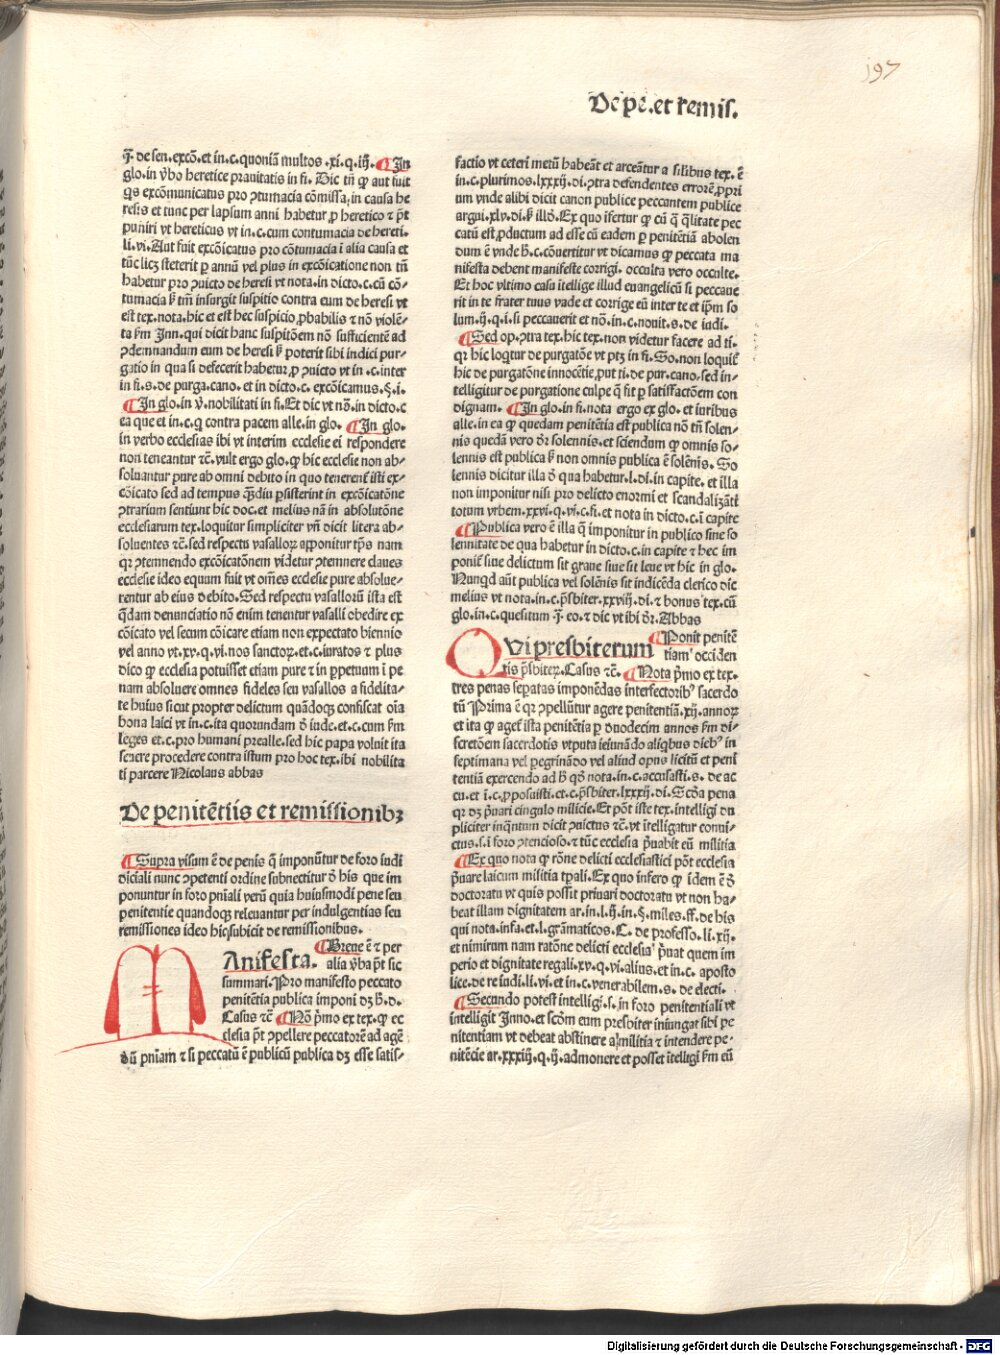 197
De pe. et remis.
q̄. de sen. excō. et in. c. quoniā multos. xi. q. iij. ¶ In
glo. in v̄bo heretice prauitatis in fi. Dic tn̄ ꝙ aut fuit
q̄s excōmunicatus pro ꝯtumacia cōmissa, in causa he
resis et tunc per lapsum anni habetur ꝓ heretico ⁊ pōt
puniri vt hereticus vt in. c. cum contumacia de hereti.
li. vi. Aut fuit excōicatus pro cōtumacia ī alia causa et
tūc licꝫ steterit ꝑ annū vel plus in excōicatione non tn̄
habetur pro ꝯuicto de heresi vt nota. in dicto. c. cū cō-
tumacia ꝭ tm̄ insurgit suspitio contra eum de heresi vt
est tex. nota. hic et est hec suspicio ꝓbabilis ⁊ nō violē-
ta ẜm Inn. qui dicit hanc suspitōem nō sufficientē ad
ꝯdemnandum eum de heresi ꝭ poterit sibi indici pur-
gatio in qua si defecerit habetur ꝓ ꝯuicto vt in. c. inter
in fi. s. de purga. cano. et in dicto. c. excōicamus. §. i.
¶ In glo. in v̄. nobilitati in fi. Et dic vt nō. in dicto. c
ea que et in. c. q̄ contra pacem alle. in glo. ¶ In glo.
in verbo ecclesias ibi vt interim ecclesie ei respondere
non teneantur ⁊c. vult ergo glo. ꝙ hic ecclesie non ab-
soluantur pure ab omni debito in quo tenerent᷑ isti ex-
cōicato sed ad tempus q̄ᷓdiu ꝑsisterint in excōicatōne
ꝯtrarium sentiunt hic doc. et melius nā in absolutōne
ecclesiarum tex. loquitur simpliciter vn̄ dicit litera ab-
soluentes ⁊c. sed respectu vasalloꝝ apponitur tp̄s nam
qꝛ ꝯtemnendo excōicatōnem videtur ꝯtemnere claues
ecclesie ideo equum fuit vt om̄es ecclesie pure absolue-
rentur ab eius debito. Sed respectu vasallorū ista est
q̄dam denunciatio nō enim tenentur vasalli obedire ex
cōicato vel secum cōicare etiam non expectato biennio
vel anno vt. xv. q. vi. nos sanctoꝝ. et. c. iuratos ⁊ plus
dico ꝙ ecclesia potuisset etiam pure ⁊ in ꝑpetuum ī pe
nam absoluere omnes fideles seu vasallos a fidelita-
te huius sicut propter delictum quādoqꝫ confiscat oīa
bona laici vt in. c. ita quorundam d̄ iude. et. c. cum ẜm
leges et. c. pro humani prealle. sed hic papa voluit ita
seuere procedere contra istum pro hoc tex. ibi nobilita
ti parcere Nicolaus abbas
De penitētiis et remissionibꝫ
¶ Supra visum ē de penis q̄ imponūtur de foro iudi
diciali nunc ꝯpetenti ordine subnectitur d̄ his que im
ponuntur in foro pn̄iali verū quia huiusmodi pene seu
penitentie quandoqꝫ releuantur per indulgentias seu
remissiones ideo hic subicit de remissionibus.
¶ Breue ē ⁊ per
Anifesta. alia v̄ba pōt sic
summari. Pro manifesto peccato
penitētia publica imponi dꝫ h̄. d.
Casus ⁊c̄ ¶ Nō p̄mo ex tex. ꝙ ec
clesia pōt ꝯpellere peccatorē ad agē
dū pn̄iam ⁊ si peccatū ē publicū publica dꝫ esse satis-
factio vt ceteri metū habeāt et arceātur a silibus tex. ē
in. c. plurimos. lxxxij. di. ꝯtra defendentes errorē ꝓpri
um vnde alibi dicit canon publice peccantem publice
argui. xlv. di. ꝭ illd̄. Ex quo ifertur ꝙ cū q̄ q̄litate pec
catū est ꝓductum ad esse cū eadem ꝑ penitētiā abolen
dum ē vnde h̄. c. cōuertitur vt dicamus ꝙ peccata ma
nifesta debent manifeste corrigi. occulta vero occulte.
Et hoc vltimo casu itellige illud euangelicū si peccaue
rit in te frater tuus vade et corrige eū inter te et ip̄m so
lum. ij. q. i. si peccauerit et nō. in. c. nouit. s. de iudi.
¶ Sed op. ꝯtra tex. hic tex. non videtur facere ad ti.
qꝛ hic loq̄tur de purgatōe vt ptꝫ in fi. So. non loquit᷑
hic de purgatōne innocētie, put ti. de pur. cano. sed in-
telligitur de purgatione culpe q̄ fit ꝑ satisfactōem con
dignam. ¶ In glo. in fi. nota ergo ex glo. et iuribus
alle. in ea ꝙ quedam penitētia est publica nō tn̄ solen-
nis quedā vero d̄r solennis. et sciendum ꝙ omnis so-
lennis est publica ꝭ non omnis publica ē solēnis. So
lennis dicitur illa d̄ qua habetur. l. di. in capite. et illa
non imponitur nisi pro delicto enormi et scandalizāti
totum vrbem. xxvi. q. vi. c. fi. et nota in dicto. c. ī capite
¶ Publica vero ē illa q̄ imponitur in publico sine so
lennitate de qua habetur in dicto. c. in capite ⁊ hec im
ponit᷑ siue delictum sit graue siue sit leue vt hic in glo.
Nunqd aūt publica vel solēnis sit indicēda clerico dic
melius vt nota. in. c. p̄sbiter. xxviij. di. ⁊ bonus tex. cū
glo. in. c. quesitum. ij. eo. ⁊ dic vt ibi d̄r. Abbas
¶ Ponit penitē
Vi presbiterum tiam occiden
tis p̄sbiteꝝ. Casus ⁊c̄. ¶ Nota p̄mo ex tex.
tres penas seꝑatas imponēdas interfectoribꝰ sacerdo
tū Prima ē qꝛ ꝯpellūtur agere penitentiā. xij. annoꝝ
et ita ꝙ aget᷑ ista penitētia ꝑ duodecim annos ẜm di-
scretōem sacerdotis vtputa ieiunādo aliqbus diebꝰ in
septimana vel ꝑegrinādo vel aliud opus licitū et peni
tentiā exercendo ad h̄ qd̄ nota. in. c. accusasti. s. de ac
cu. et ī. c. ꝓposuisti. et. c. p̄sbiter. lxxxij. di. Scd̄a pena
qꝛ dꝫ p̄uari cingulo milicie. Et pōt iste tex. intelligi du
pliciter inq̄ntum dicit ꝯuictus ⁊c̄. vt itelligatur conui-
ctus. s. i foro ꝯtencioso. ⁊ tūc ecclesia p̄uabit eū militia
¶ Ex quo nota ꝙ rōne delicti ecclesiastici pōt ecclesia
p̄uare laicum militia tp̄ali. Ex quo infero ꝙ idem ē d̄
doctoratu vt quis possit priuari doctoratu vt non ha-
beat illam dignitatem ar. in. l. ij. in. §. miles. ff. de his
qui nota. infa. et. l. grāmaticos. C. de professo. li. xij.
et nimirum nam ratōne delicti ecclesia p̄uat quem im
perio et dignitate regali. xv. q. vi. alius. et in. c. aposto
lice. de re iudi. li. vi. et in. c. venerabilem. s. de electi.
¶ Secundo potest intelligi. s. in foro penitentiali vt
intelligit Inno. et scōm eum presbiter iniungat sibi pe
nitentiam vt debeat abstinere a militia ⁊ intendere pe-
nitēcie ar. xxxiij. q. ij. admonere et posset itelligi ẜm eū
Digitalisierung gefördert durch die Deutsche Forschungsgemeinschaft - DFG